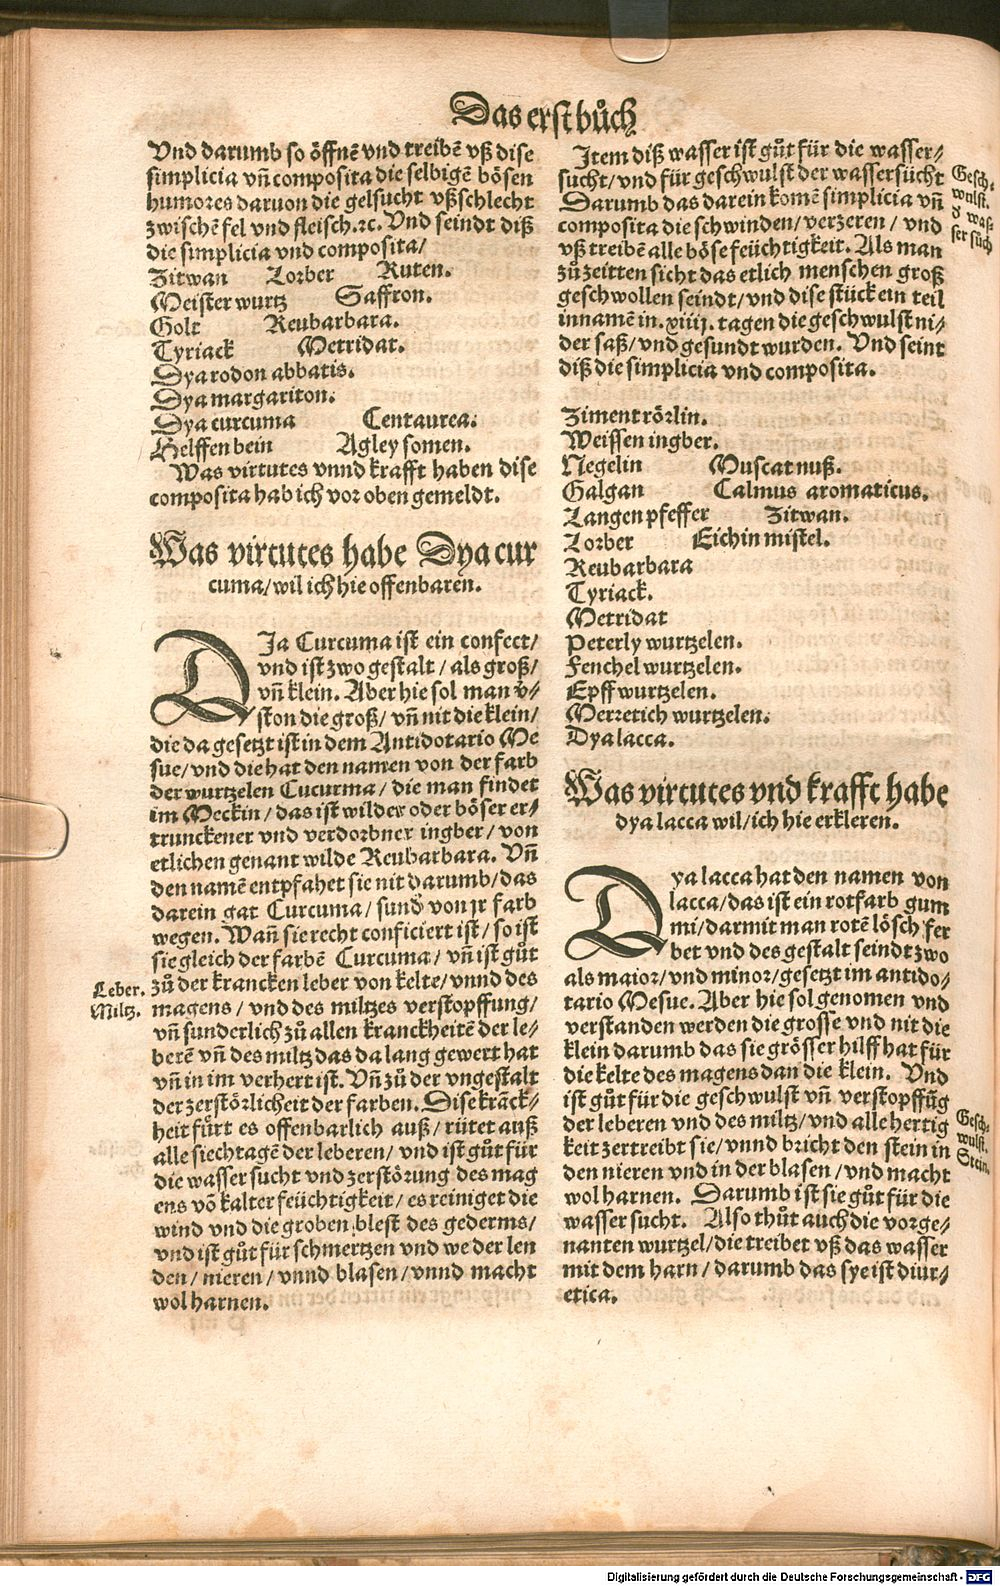 Das erst bůch
Vnd darumb so öffnē vnd treibē vß dise
simplicia vñ composita die selbigē bösen
humores daruon die gelsucht vßschlecht
zwischē fel vnd fleisch.ꝛc. Vnd seindt diß
die simplicia vnd composita/
Zitwan Lorber Ruten.
Meister wurtz Saffron.
Golt Reubarbara.
Tyriack Metridat.
Dya rodon abbatis.
Dya margariton.
Dya curcuma Centaurea.
Helffen bein Agley somen.
Was virtutes vnnd krafft haben dise
composita hab ich vor oben gemeldt.
Was virtutes habe Dya cur
cuma/ wil ich hie offenbaren.
DJa Curcuma ist ein confect/
vnd ist zwo gestalt / als groß/
vñ klein. Aber hie sol man v̄-
ston die groß/ vñ nit die klein/
die da gesetzt ist in dem Antidotario Me
sue/ vnd die hat den namen von der farb
der wurtzelen Cucurma / die man findet
im Meckin / das ist wilder oder böser er-
trunckener vnd verdorbner ingber/ von
etlichen genant wilde Reubarbara. Vñ
den namē entpfahet sie nit darumb/ das
darein gat Curcuma / sund̄ von jr farb
wegen. Wañ sie recht conficiert ist / so ist
sie gleich der farbē Curcuma / vñ ist gůt
Leber. zů der krancken leber von kelte/ vnnd des
Miltz. magens / vnd des miltzes verstopffung/
vñ sunderlich zů allen kranckheitē der le-
berē vñ des miltz das da lang gewert hat
vñ in im verhert ist. Vñ zů der vngestalt
der zerstörlicheit der farben. Dise krāck-
heit fůrt es offenbarlich auß / rütet auß
alle siechtagē der leberen/ vnd ist gůt für
die wasser sucht vnd zerstörung des mag
ens vō kalter feüchtigkeit / es reiniget die
wind vnd die groben blest des gederms/
vnd ist gůt für schmertzen vnd we der len
den / nieren / vnnd blasen / vnnd macht
wol harnen.
Jtem diß wasser ist gůt für die wasser-
sucht/ vnd für geschwulst der wassersücht Gesch-
Darumb das darein komē simplicia vñ wulst.
composita die schwinden/ verzeren / vnd d̄ was-
vß treiben alle böse feüchtigkeit. Als man ser süch
zů zeitten sicht das etlich menschen groß
geschwollen seindt/ vnd dise stück ein teil
innamē in .xiiij. tagen die geschwulst ni-
der saß/ vnd gesundt wurden. Vnd seint
diß die simplicia vnd composita.
Ziment rörlin.
Weissen ingber.
Negelin Muscat nuß.
Galgan Calmus aromaticus.
Langen pfeffer Zitwan.
Lorber Eichin mistel.
Reubarbara
Tyriack.
Metridat
Peterly wurtzelen.
Fenchel wurtzelen.
Epff wurtzelen.
Merretich wurtzelen.
Dya lacca.
Was virtutes vnd krafft habe
dya lacca wil/ ich hie erkleren.
Dya lacca hat den namen von
lacca/ das ist ein rotfarb gum
mi/ darmit man rotē lösch fer
bet vnd des gestalt seindt zwo
als maior/ vnd minor/ gesetzt im antido-
tario Mesue. Aber hie sol genomen vnd
verstanden werden die grosse vnd nit die
klein darumb das sie grösser hilff hat für
die kelte des magens dan die klein. Vnd
ist gůt für die geschwulst vñ verstopffūg
der leberen vnd des miltz/ vnd alle hertig Gesch-
keit zertreibt sie/ vnnd bricht den stein in wulst.
den nieren vnd in der blasen / vnd macht Stein.
wol harnen. Darumb ist sie gůt für die
wasser sucht. Also thůt auch die vorge-
nanten wurtzel/ die treibet vß das wasser
mit dem harn / darumb das sye ist diur-
etica.
Digitalisierung gefördert durch die Deutsche Forschungsgemeinschaft - DFG